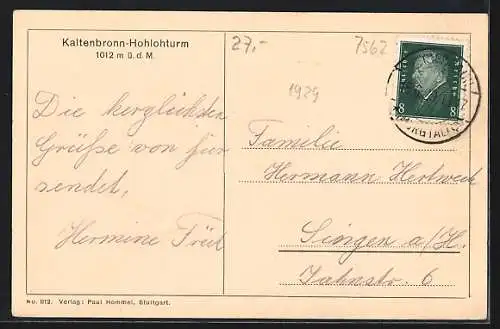 Kaltenbronn-Hohlohturm
1012 m ü. d. M.
27,-
7562
1929
8 8
Die herzlichsten
Grüße von hier
sendet,
Hermine
Familie
Hermann Hertweck
Singen a/H.
Jahnstr. 6
No. 912. Verlag: Paul Hommel, Stuttgart.